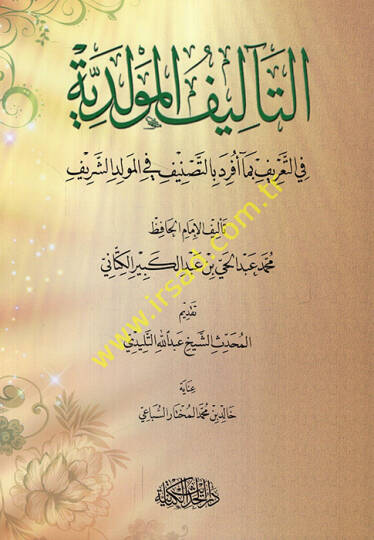 التآليف المولدية
في التعريف بما أفرد بالتصنيف في المولد الشريف
تأليف الإمام الحافظ
محمد عبد الحي بن عبد الكبير الكتاني
تقديم
المحدث الشيخ عبد الله التليدي
عناية
خالد بن محمد المختار السباعي
دار الحديث الكتانية
www.irsad.com.tr